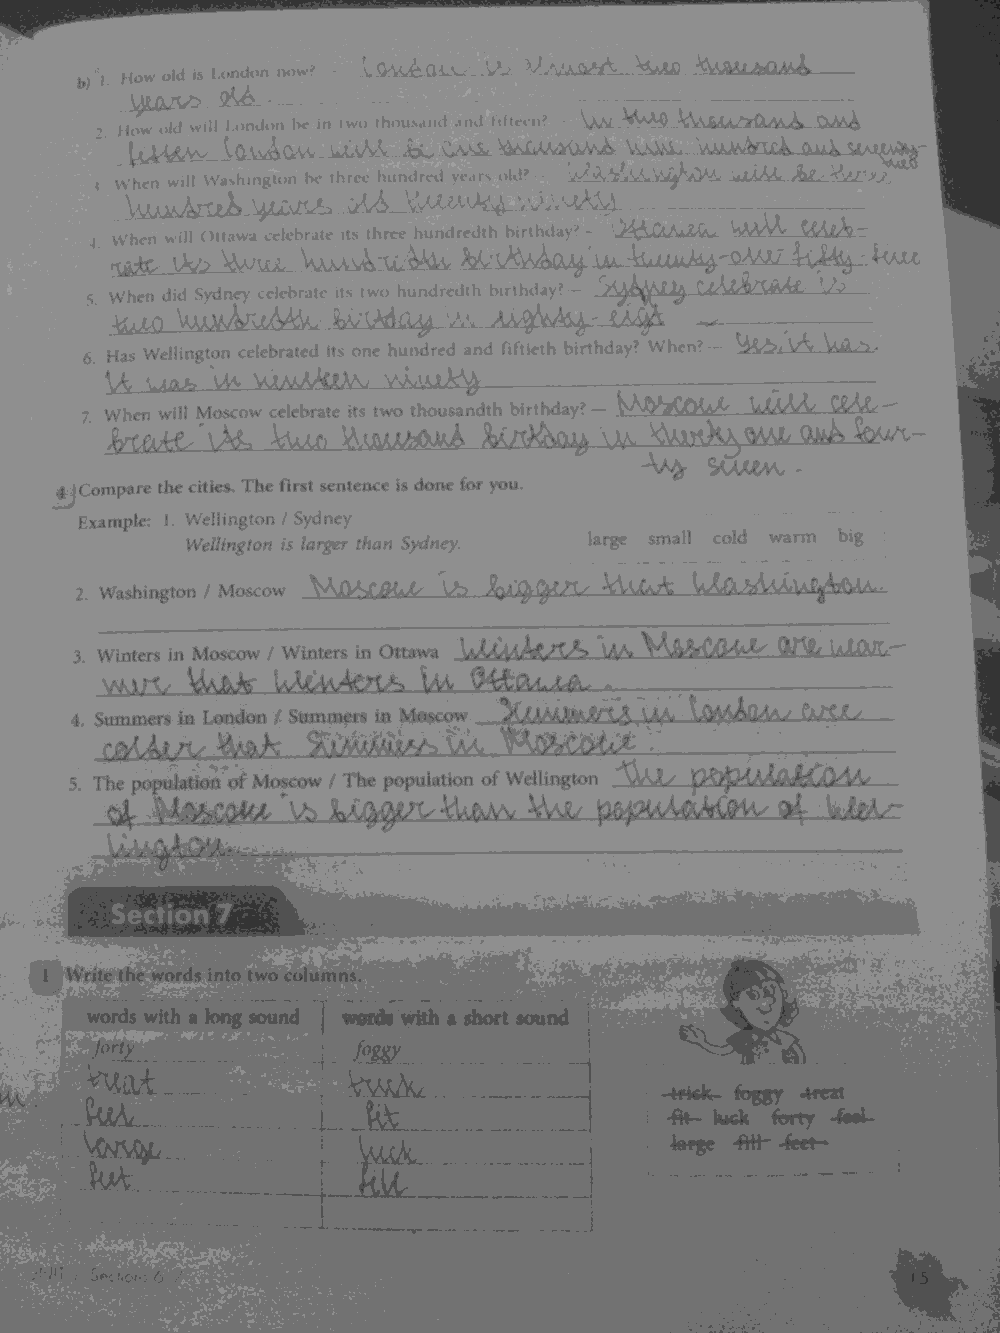 b) 1. How old is London now? - London is almost two thousand
years old.
2. How old will London be in two thousand and fifteen? - In two thousand and
fifteen London will be one thousand nine hundred and seventy-
two
3. When will Washington be three hundred years old? - Washington will be three
hundred years old twenty ninety
4. When will Ottawa celebrate its three hundredth birthday? - Ottawa will celeb-
rate its three hundredth birthday in twenty-one fifty-four
5. When did Sydney celebrate its two hundredth birthday? - Sydney celebrate is
two hundredth birthday in eighty-eigt
6. Has Wellington celebrated its one hundred and fiftieth birthday? When? - Yes, it has.
It was in nineteen ninety
7. When will Moscow celebrate its two thousandth birthday? - Moscow will cele-
brate its two thousand birthday in thirty one and four-
ty seven.
4 Compare the cities. The first sentence is done for you.
Example: 1. Wellington / Sydney
Wellington is larger than Sydney.
large small cold warm big
2. Washington / Moscow Moscow is bigger that Washington.
3. Winters in Moscow / Winters in Ottawa Winters in Moscow are war-
mer that Winters in Ottawa.
4. Summers in London / Summers in Moscow Summers in London are
colder that Summers in Moscow.
5. The population of Moscow / The population of Wellington The population
of Moscow is bigger than the population of Wel-
lington.
Section 7
1 Write the words into two columns.
words with a long sound words with a short sound
forty foggy
treat trick
feel fit
large luck
feet fill
trick foggy treat
fit luck forty feel
large fill feet
Section 6
15